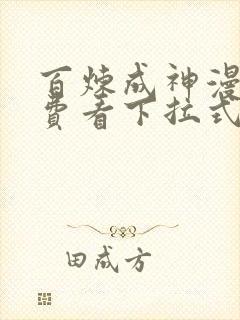 百炼成神漫
费看下拉式
田成方